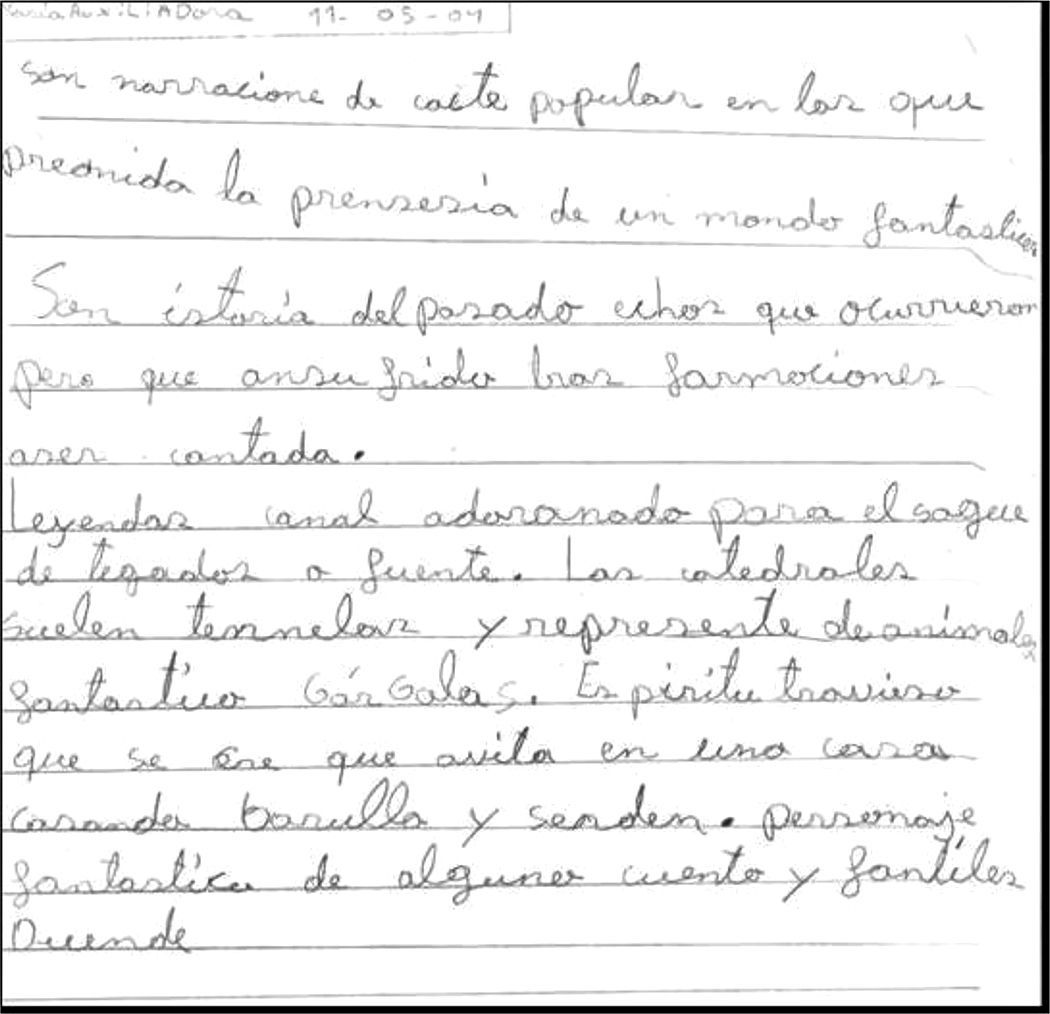 María AuxiLiADora 11- 05-04
son narracione de caete popular en las que
preonida la prensesia de un mondo fantastico
Son istoria del pasado echos que ocurrueron
pero que ansu frido tras farmociones
aser cantada.
Leyendas canal adoranado para el sague
de tegados o fuente. Las catedrales
suelen tennelas y represente de animales
fantastico GárGolas. Espiritu travieso
que se cre que avita en una casa
casando barullo y senden. personaje
fantastico de alguno cuento y fantiles
Duende